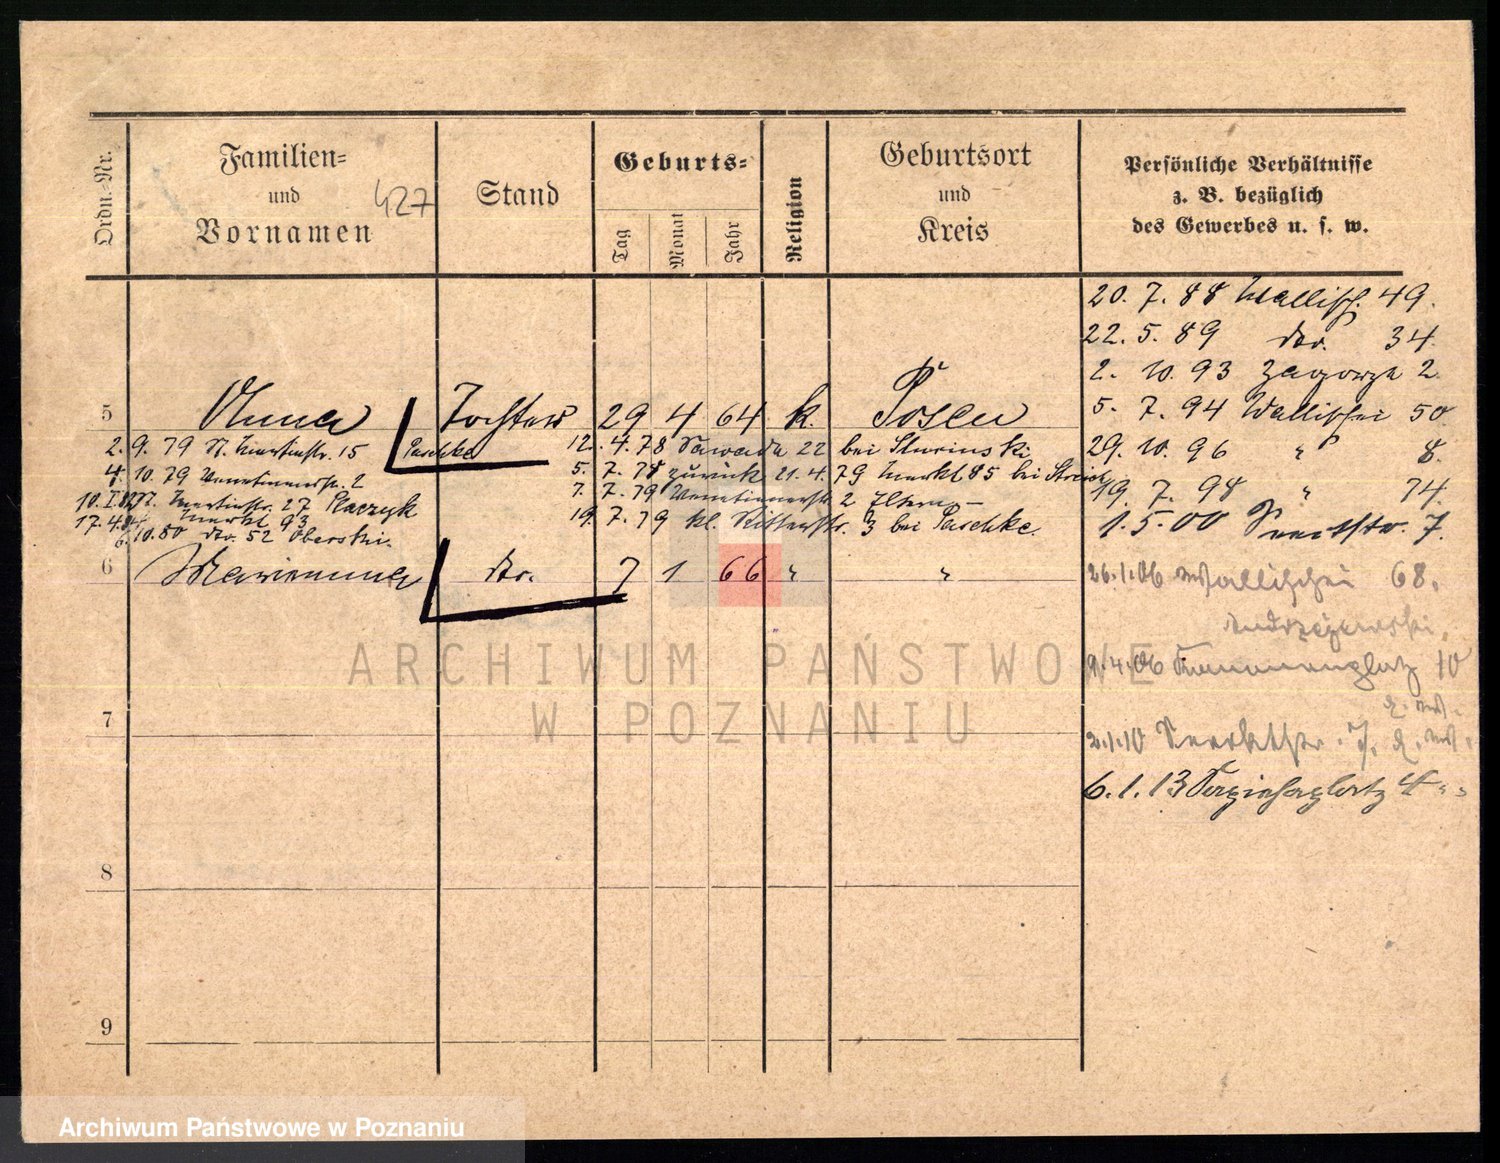 Ordn.-Nr.
Familien-
und
Vornamen
427
Stand
Geburts-
Tag
Monat
Jahr
Religion
Geburtsort
und
Kreis
Persönliche Verhältnisse
z. B. bezüglich
des Gewerbes u. s. w.
20. 7. 88 Wallisch. 49.
22. 5. 89 do. 34
2. 10. 93 Zagorze 2
5. 7. 94 Wallischei 50.
29. 10. 96 " 8.
19. 7. 98 " 74.
1. 5. 00 7.
5 Anna Tochter 29 4 64 k. Posen
2. 9. 79 St. Martinstr. 15 Paschke
12. 4. 78 Sawade 22 bei Sturinski
4. 10. 79 Venetianerstr. 2
5. 7. 78 zurück 21. 4. 79 Markt 85 bei
7. 7. 79 Venetianerstr. 2 Eltern
10. I. 27 Placzyk
17. 4. Markt 93
19. 7. 79 kl. Ritterstr. 3 bei Paschke.
6. 10. 80 do. 52 Oberski.
6 Marianna do. 7 1 66 " "
26. 1. 06 Wallischei 68.
Andrzejewski.
9. 4. 06 10
2. 1. 10 7.
6. 1. 13 Sapiehaplatz 4 " "
7
8
9
ARCHIWUM PAŃSTWOWE
W POZNANIU
Archiwum Państwowe w Poznaniu